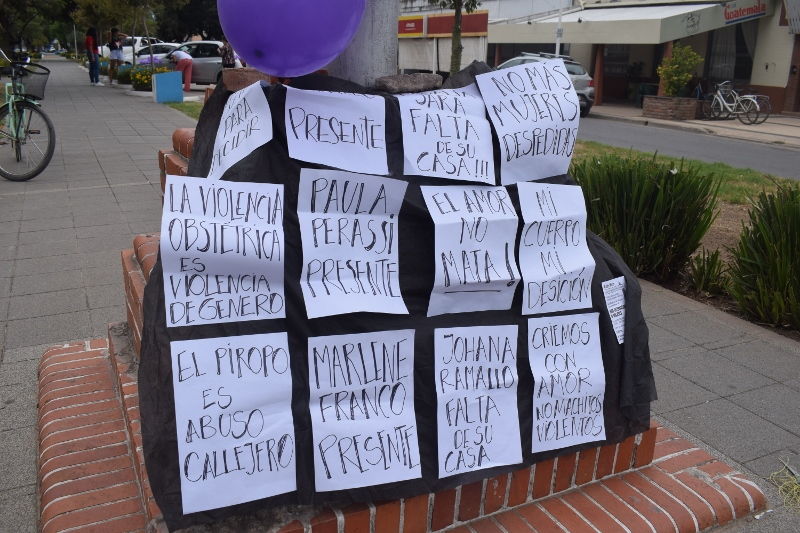 PARA
DECIDIR
PRESENTE
SARA
FALTA
DE SU
CASA!!!
NO MAS
MUJERES
DESPEDIDAS
LA VIOLENCIA
OBSTÉTRICA
ES
VIOLENCIA
DE GENERO
PAULA
PERASSI
PRESENTE
EL AMOR
NO
MATA!
MI
CUERPO
MI
DESICIÓN
EL PIROPO
ES
ABUSO
CALLEJERO
MARLENE
FRANCO
PRESENTE
JOHANA
RAMALLO
FALTA
DE SU
CASA
CRIEMOS
CON
AMOR
NO MACHITOS
VIOLENTOS
Guatemala